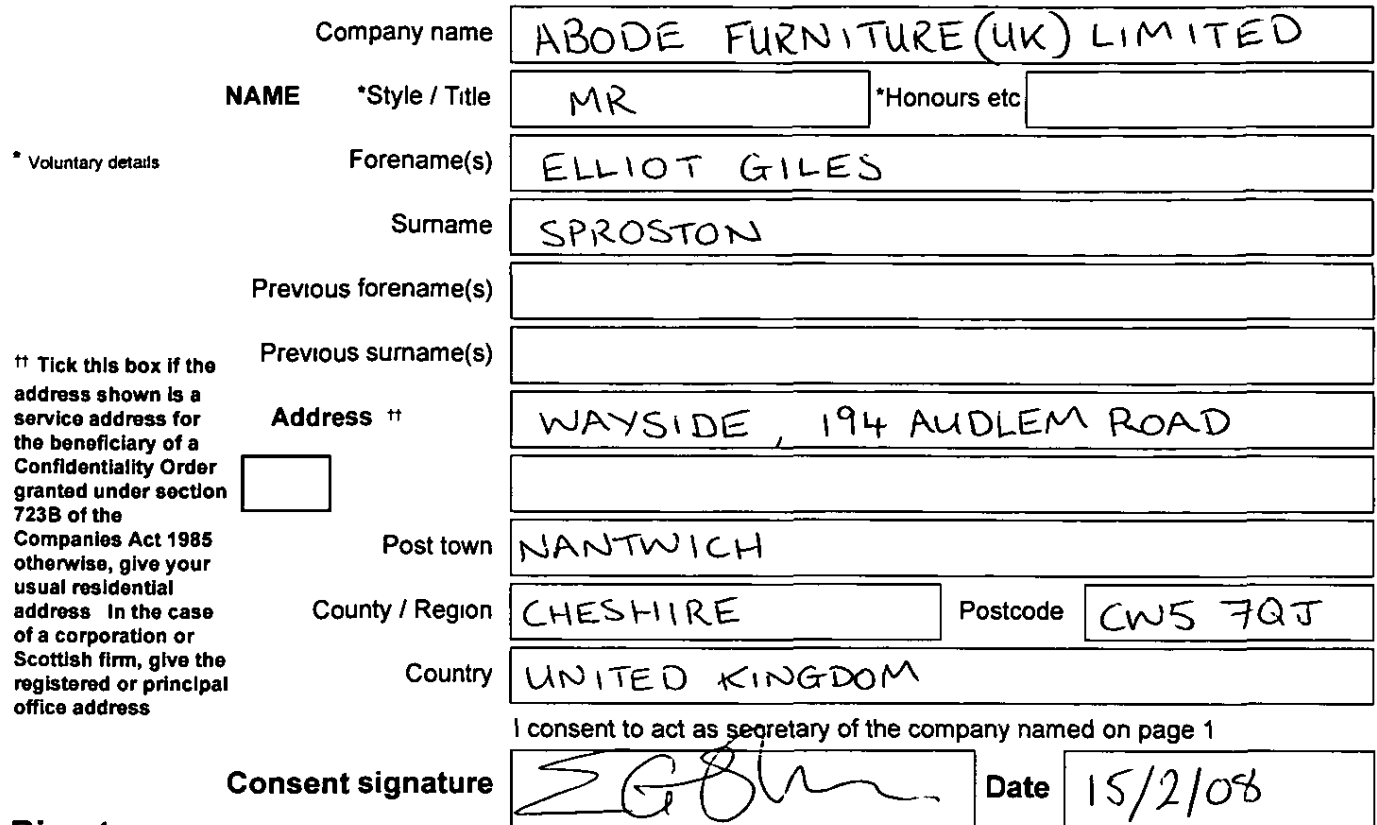 Company name ABODE FURNITURE (UK) LIMITED
NAME *Style / Title MR *Honours etc
* Voluntary details Forename(s) ELLIOT GILES
Surname SPROSTON
Previous forename(s)
Previous surname(s)
†† Tick this box if the
address shown is a
service address for
the beneficiary of a
Confidentiality Order
granted under section
723B of the
Companies Act 1985
otherwise, give your
usual residential
address In the case
of a corporation or
Scottish firm, give the
registered or principal
office address
Address †† WAYSIDE, 194 AUDLEM ROAD
Post town NANTWICH
County / Region CHESHIRE Postcode CW5 7QJ
Country UNITED KINGDOM
I consent to act as secretary of the company named on page 1
Consent signature Date 15/2/08